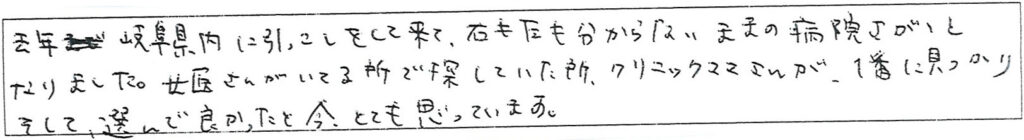 去年 岐阜県内に引っこしをして来て、右も左も分からないままの病院さがしと
なりました。女医さんがいてる所で探していた所、クリニックママさんが、1番に見つかり
そして、選んで良かったと今、とても思っています。